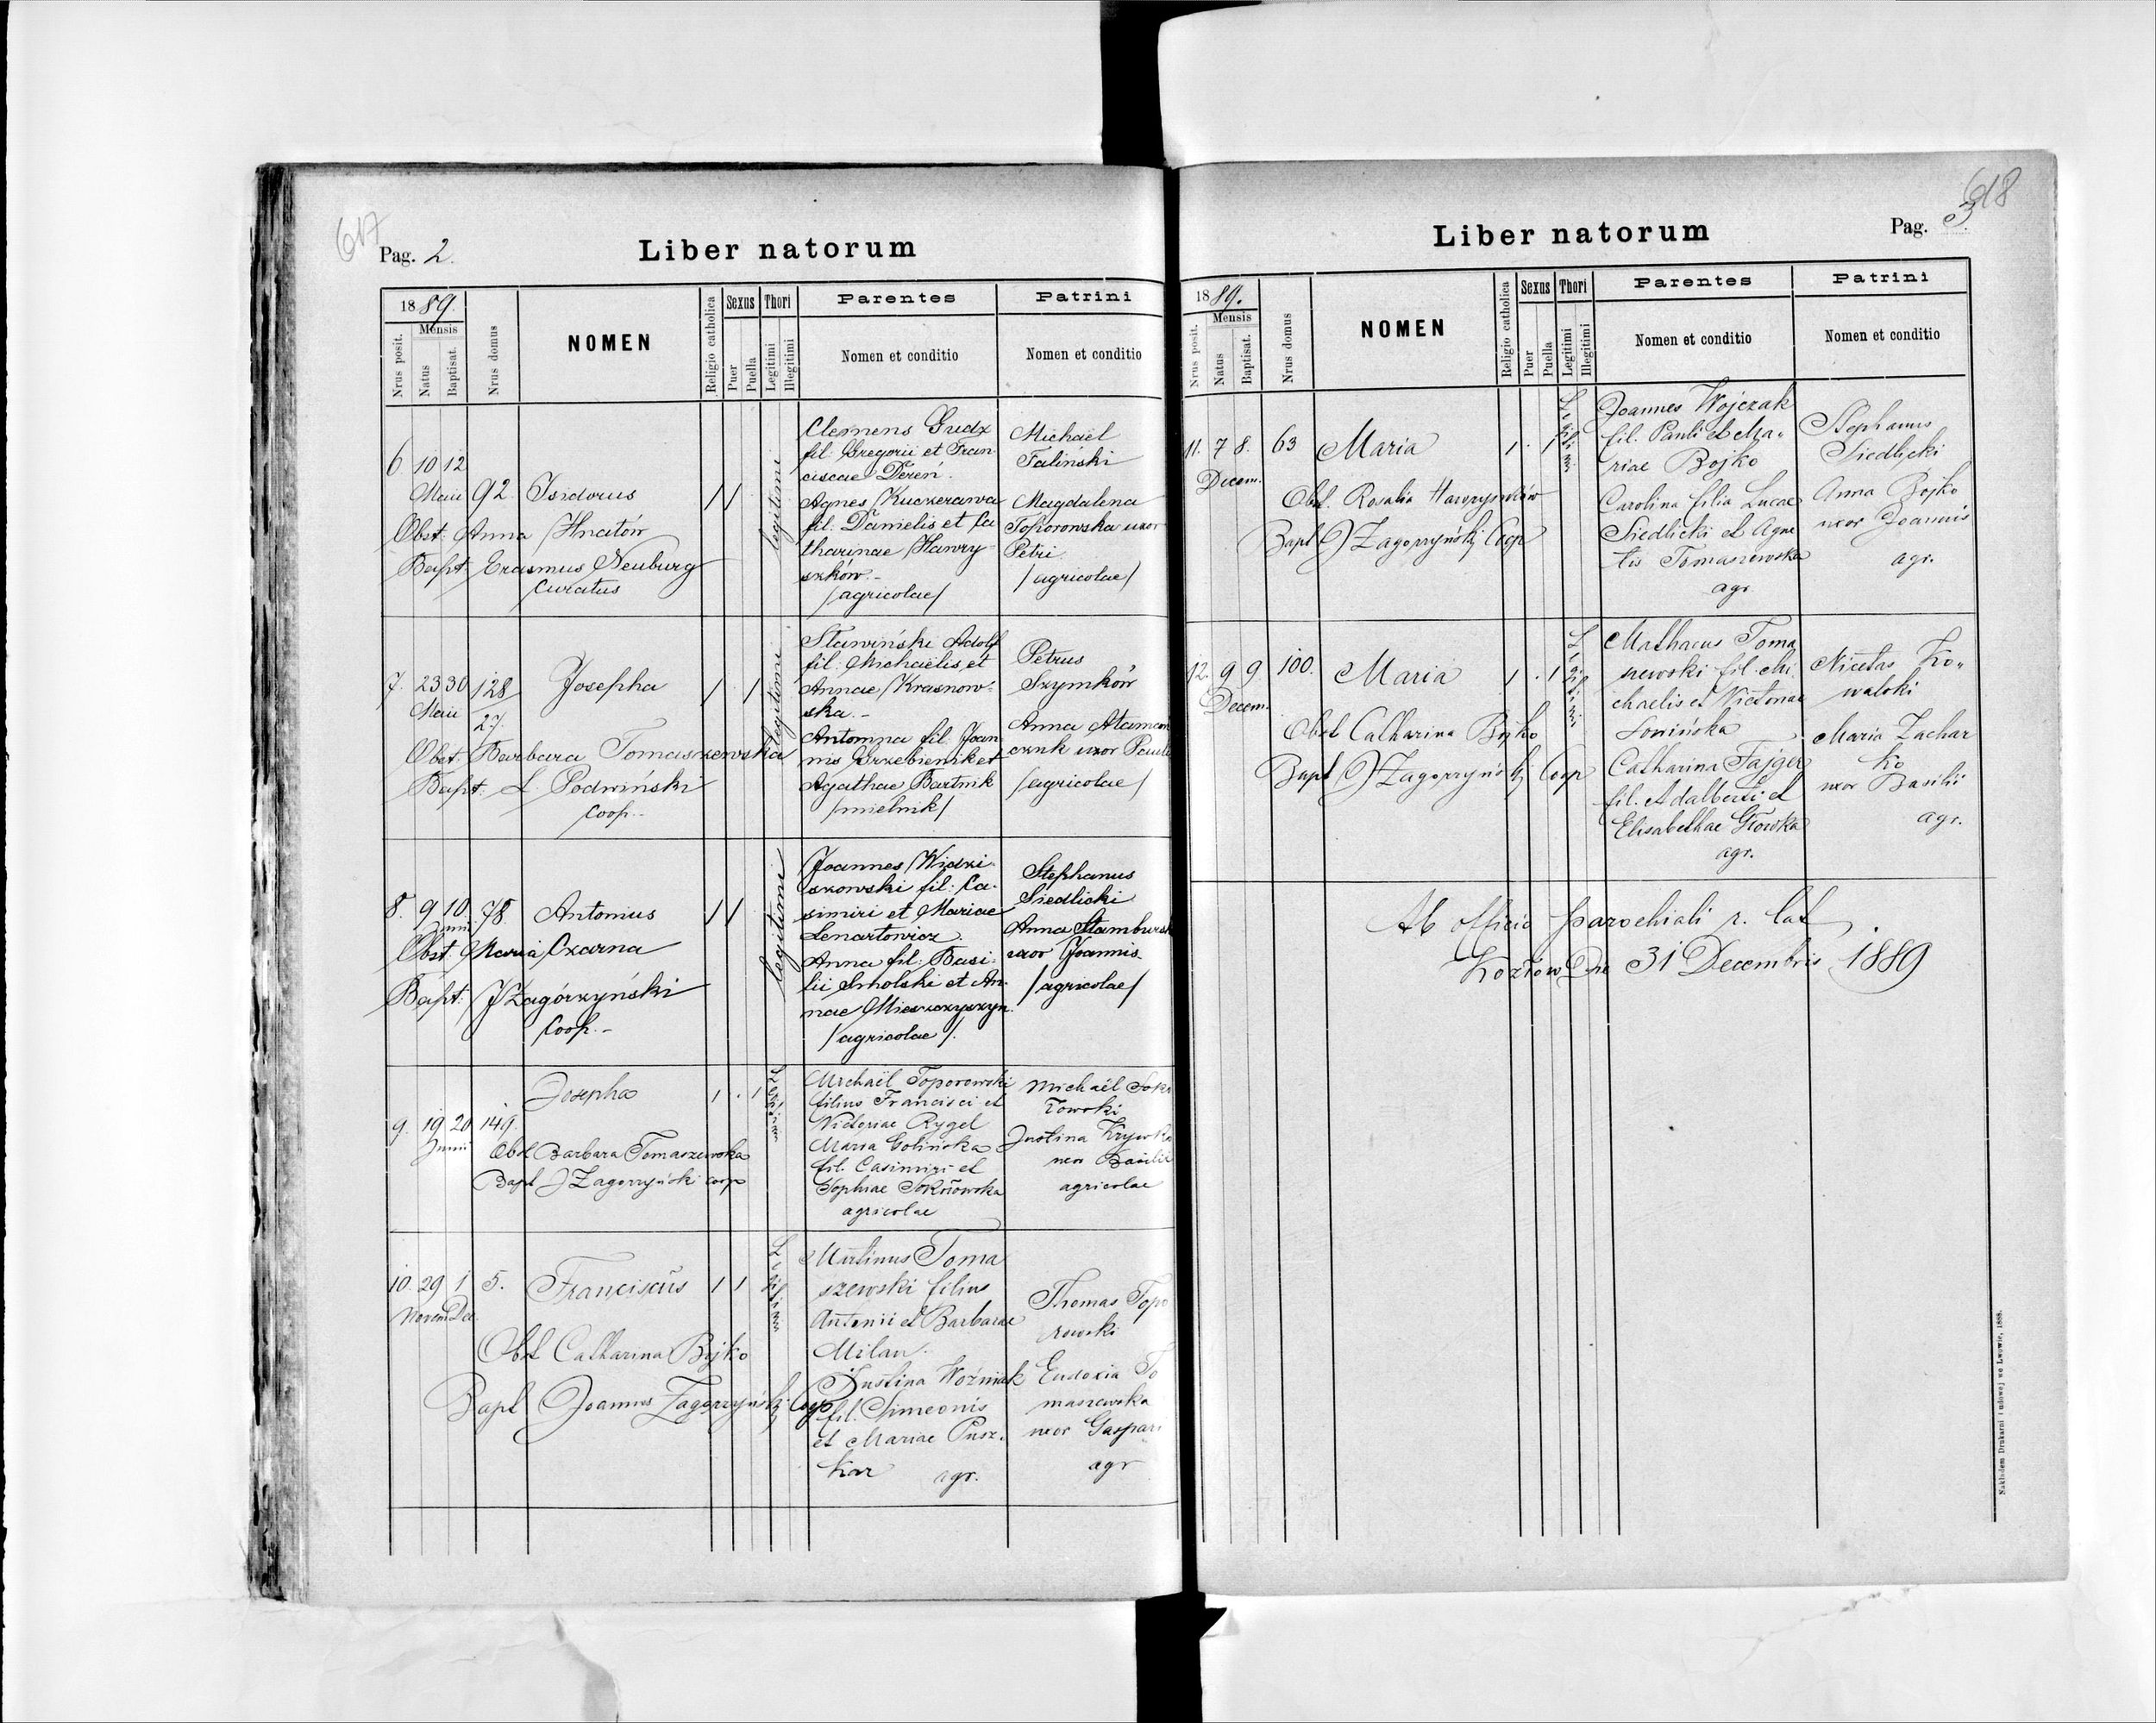 617
Pag. 2.
Liber natorum
1889.
Mensis
Nrus posit.
Natus
Baptisat.
Nrus domus
NOMEN
Religio catholica
Sexus
Puer
Puella
Thori
Legitimi
Illegitimi
Parentes
Nomen et conditio
Patrini
Nomen et conditio
6 10 12
Maii 92 Isidorus
Obst: Anna Hnatów
Bapt. Erasmus Neuburg
Curatus
1 1
legitimi
Clemens Gudz
fil. Gregorii et Fran
ciscae Dereń.
Agnes Kuczerawa
fil. Danielis et Ca
tharinae Hawry
szków.-
/agricolae/
Michaël
Taliński
Magdalena
Toporowska uxor
Petri
/agricolae/
7. 23 30 128
Maii 27.
Josepha
1 1
legitimi
Obst: Barbara Tomaszewska
Bapt. L. Podwiński
Coop.-
Stawiński Adolf
fil. Michaëlis et
Annae Krasnow-
ska.-
Antonina fil. Joan
nis Grzebieniket
Agathae Bartnik
/mielnik/
Petrus
Szymków
Anna Ataman
czuk uxor Pauli
/agricolae/
8. 9 10. 78. Antonius
Junii
1 1
legitimi
Obst. Maria Czarna
Bapt. J Zagórzyński
Coop.-
Joannes Widzi-
szowski fil: Ca-
simiri et Mariae
Lenartowicz.
Anna fil: Basi-
lii Smolski et An-
nae Mieszczyszyn.
/agricolae/.
Stephanus
Siedlicki
Anna Stambursk
uxor Joannis.
/agricolae/
9. 19 20 149.
Junii
Josepha
1 . 1
Legitimi
Obst Barbara Tomaszewska
Bapt J Zagorzyński coop
Michaël Toporowski
filius Francisci et
Victoriae Rygel
Maria Golińska
fil. Casimiri et
Sophiae Sokołowska
agricolae
Michaël Soko
łowski
Justina Krywka
uxor Basilii
agricolae
10. 29 1 5. Franciscus
Novem Dec.
1 1
Legitimi
Obst Catharina Bojko
Bapt Joannes Zagorzyński Coop
Martinus Toma
szewski filius
Antonii et Barbarae
Milan.
Justina Woźniak
fil. Simeonis
et Mariae Pusz.
kar agr.
Thomas Topo
rowski
Eudoxia To
maszewska
uxor Gaspari
agr
618
Pag. 3.
Liber natorum
1889.
Mensis
Nrus posit.
Natus
Baptisat.
Nrus domus
NOMEN
Religio catholica
Sexus
Puer
Puella
Thori
Legitimi
Illegitimi
Parentes
Nomen et conditio
Patrini
Nomen et conditio
11. 7 8. 63 Maria
Decem.
1 . 1
Legitimi
Obst. Rosalia Hawryszków
Bapt J Zagorzyński Coop
Joannes Wojczak
fil. Pauli et Ma-
riae Bojko
Carolina filia Lucae
Siedlicki et Agne
tis Tomaszewska
agr.
Stephanus
Siedlicki
Anna Bojko
uxor Joannis
agr.
12. 9 9. 100. Maria
Decem.
1 . 1
Legitimi
Obst Catharina Bojko
Bapt J Zagorzyński Coop
Mathaeus Toma
szewski fil. Mi
chaelis et Victoriae
Sowińska
Catharina Fajger
fil. Adalberti et
Elisabethae Głowka
agr.
Nicetas Ko-
walski
Maria Zachar
ko
uxor Basilii
agr.
Ab officio parochiali r. lat
Kozłów Die 31 Decembris 1889
Nakładem Drukarni Ludowej we Lwowie, 1888.